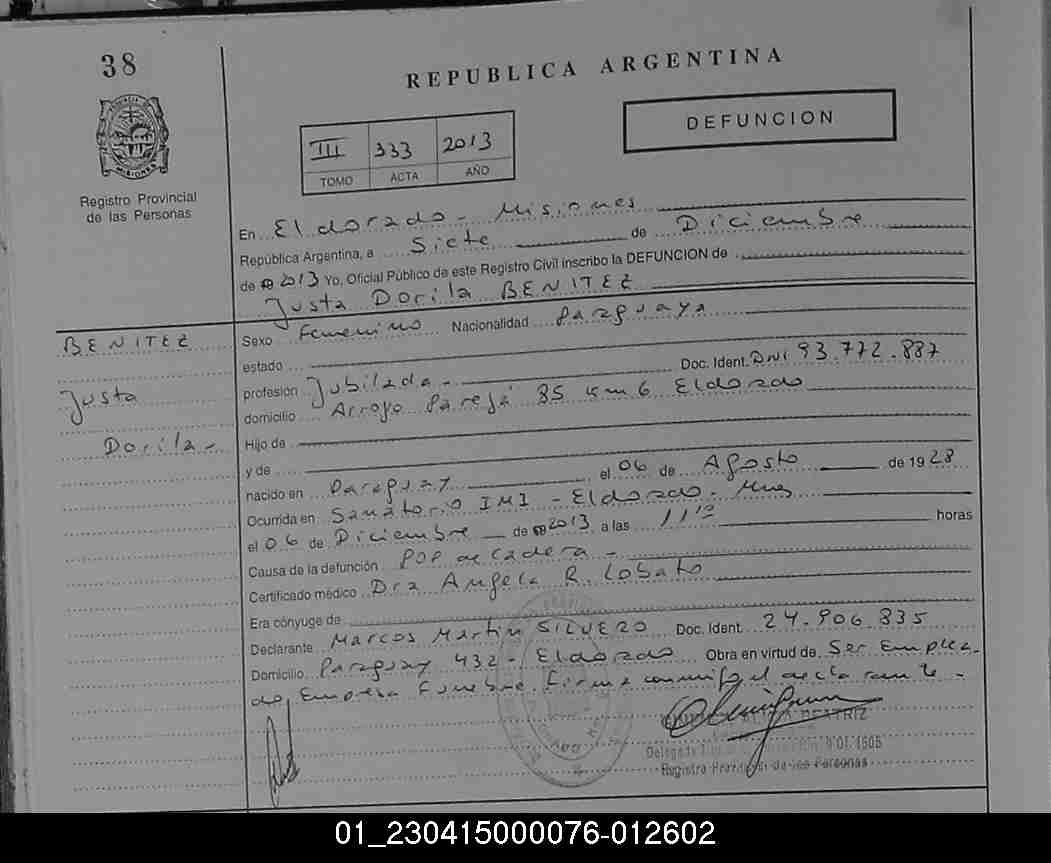 38
REPUBLICA ARGENTINA
DEFUNCION
III 333 2013
TOMO ACTA AÑO
Registro Provincial
de las Personas
En Eldorado - Misiones
República Argentina, a Siete de Diciembre
de 2013 Yo, Oficial Público de este Registro Civil inscribo la DEFUNCION de
Justa Dorila BENITEZ
BENITEZ
Justa
Dorila -
Sexo Femenino Nacionalidad Paraguaya
estado
Doc. Ident. DNI 93.772.887
profesión Jubilada -
domicilio Arroyo Pareja 85 km 6 Eldorado
Hijo de
y de
nacido en Paraguay el 06 de Agosto de 1928
Ocurrida en Sanatorio IMI - Eldorado - Mnes
el 06 de Diciembre de 2013 a las 11 horas
Causa de la defunción POP de Cadera -
Certificado médico Dra Angela R. Lobato
Era cónyuge de
Declarante Marcos Martin SILVERO Doc. Ident. 24.906.835
Domicilio Paraguay 432 - Eldorado Obra en virtud de Ser Emplea-
do Empresa Funebre. Firma conmigo el declarante -
BEATRIZ
Registro Provincial de las Personas
01_230415000076-012602